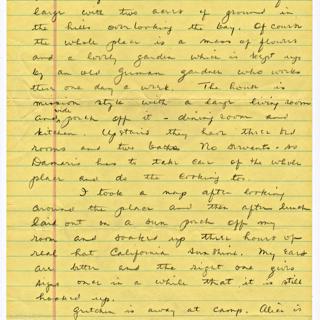 large with two acres of ground in
the hills overlooking the bay. Of course
the whole place is a mass of flowers
and a lovely garden which is kept up
by an old German gardner who works
there one day a week. The house is
mission style with a large living room
and wide porch off it - dining room and
kitchen Upstairs they have three bed
rooms and two baths No servants - so
Damaris has to take care of the whole
place and do the cooking too.
I took a nap after looking
around the place and then after lunch
laid out on a sun porch off my
room and soaked up three hours of
real hot California sunshine. My ears
are better and the right one gives
signs once in a while that it is still
hooked up.
Gretchen is away at camp. Alice is